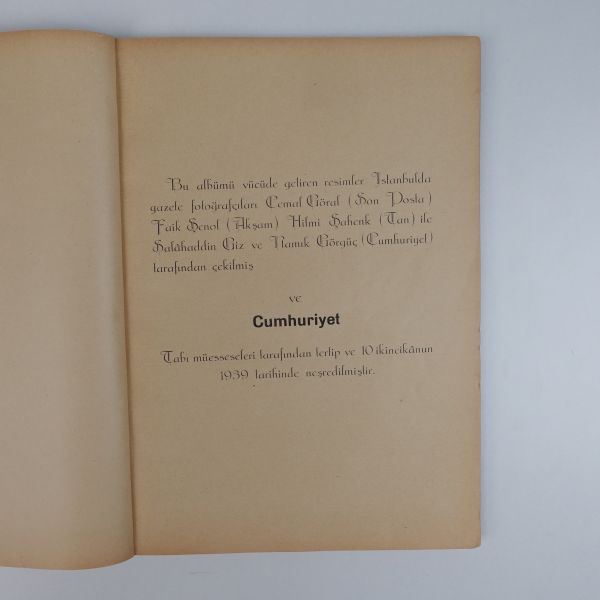 Bu albümü vücude getiren resimler İstanbulda
gazete fotoğrafçıları Cemal Göral (Son Posta)
Faik Şenol (Akşam) Hilmi Şahenk (Tan) ile
Salâhaddin Giz ve Namık Görgüç (Cumhuriyet)
tarafından çekilmiş
ve
Cumhuriyet
Tabı müesseseleri tarafından tertip ve 10 ikincikânun
1939 tarihinde neşredilmiştir.